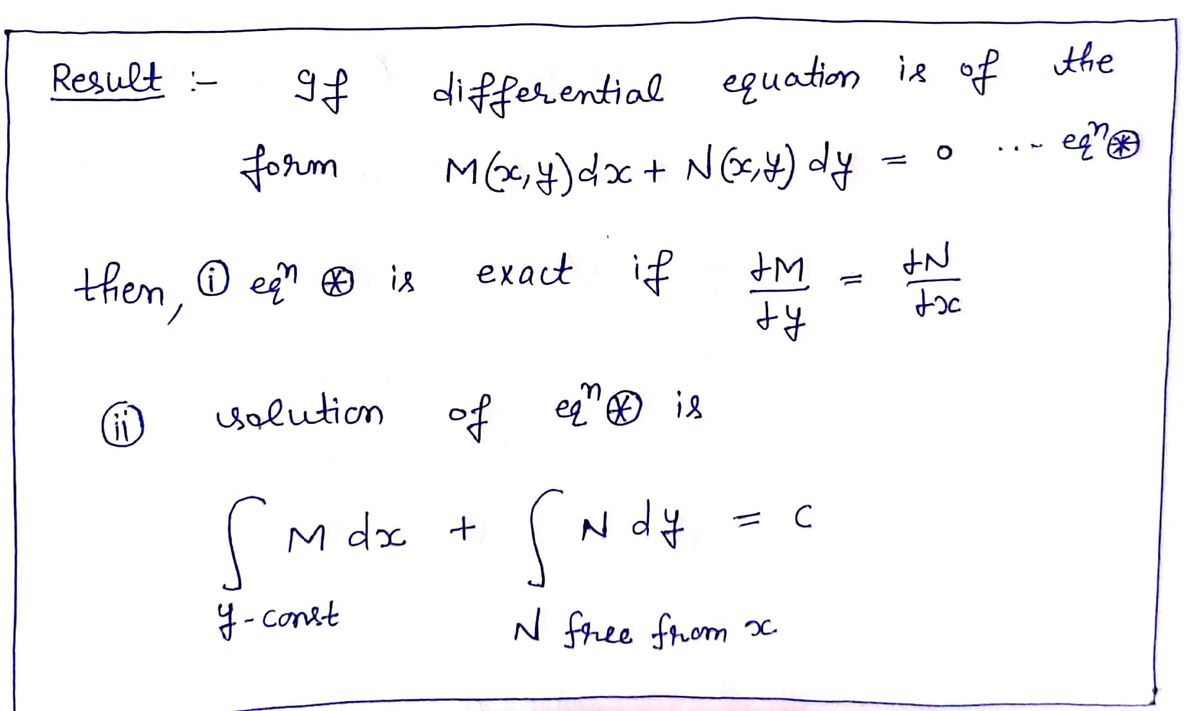 Result :- If differential equation is of the
form M(x,y)dx + N(x,y) dy = 0 ... eqⁿ⊛
then, ⓘ eqⁿ ⊛ is exact if ∂M/∂y = ∂N/∂x
ⓘⓘ solution of eqⁿ⊛ is
∫ M dx + ∫ N dy = c
y-const N free from x